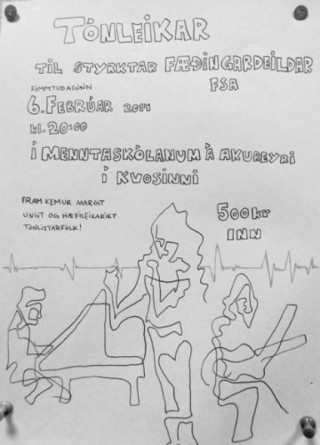 TÓNLEIKAR
TIL STYRKTAR FÆÐINGARDEILDAR
FSA
FIMMTUDAGINN
6. FEBRÚAR 2014
kl. 20:00
Í MENNTASKÓLANUM Á AKUREYRI
Í KVOSINNI
FRAM KEMUR MARGT
UNGT OG HÆFILEIKARÍKT
TÓNLISTARFÓLK!
500kr
INN